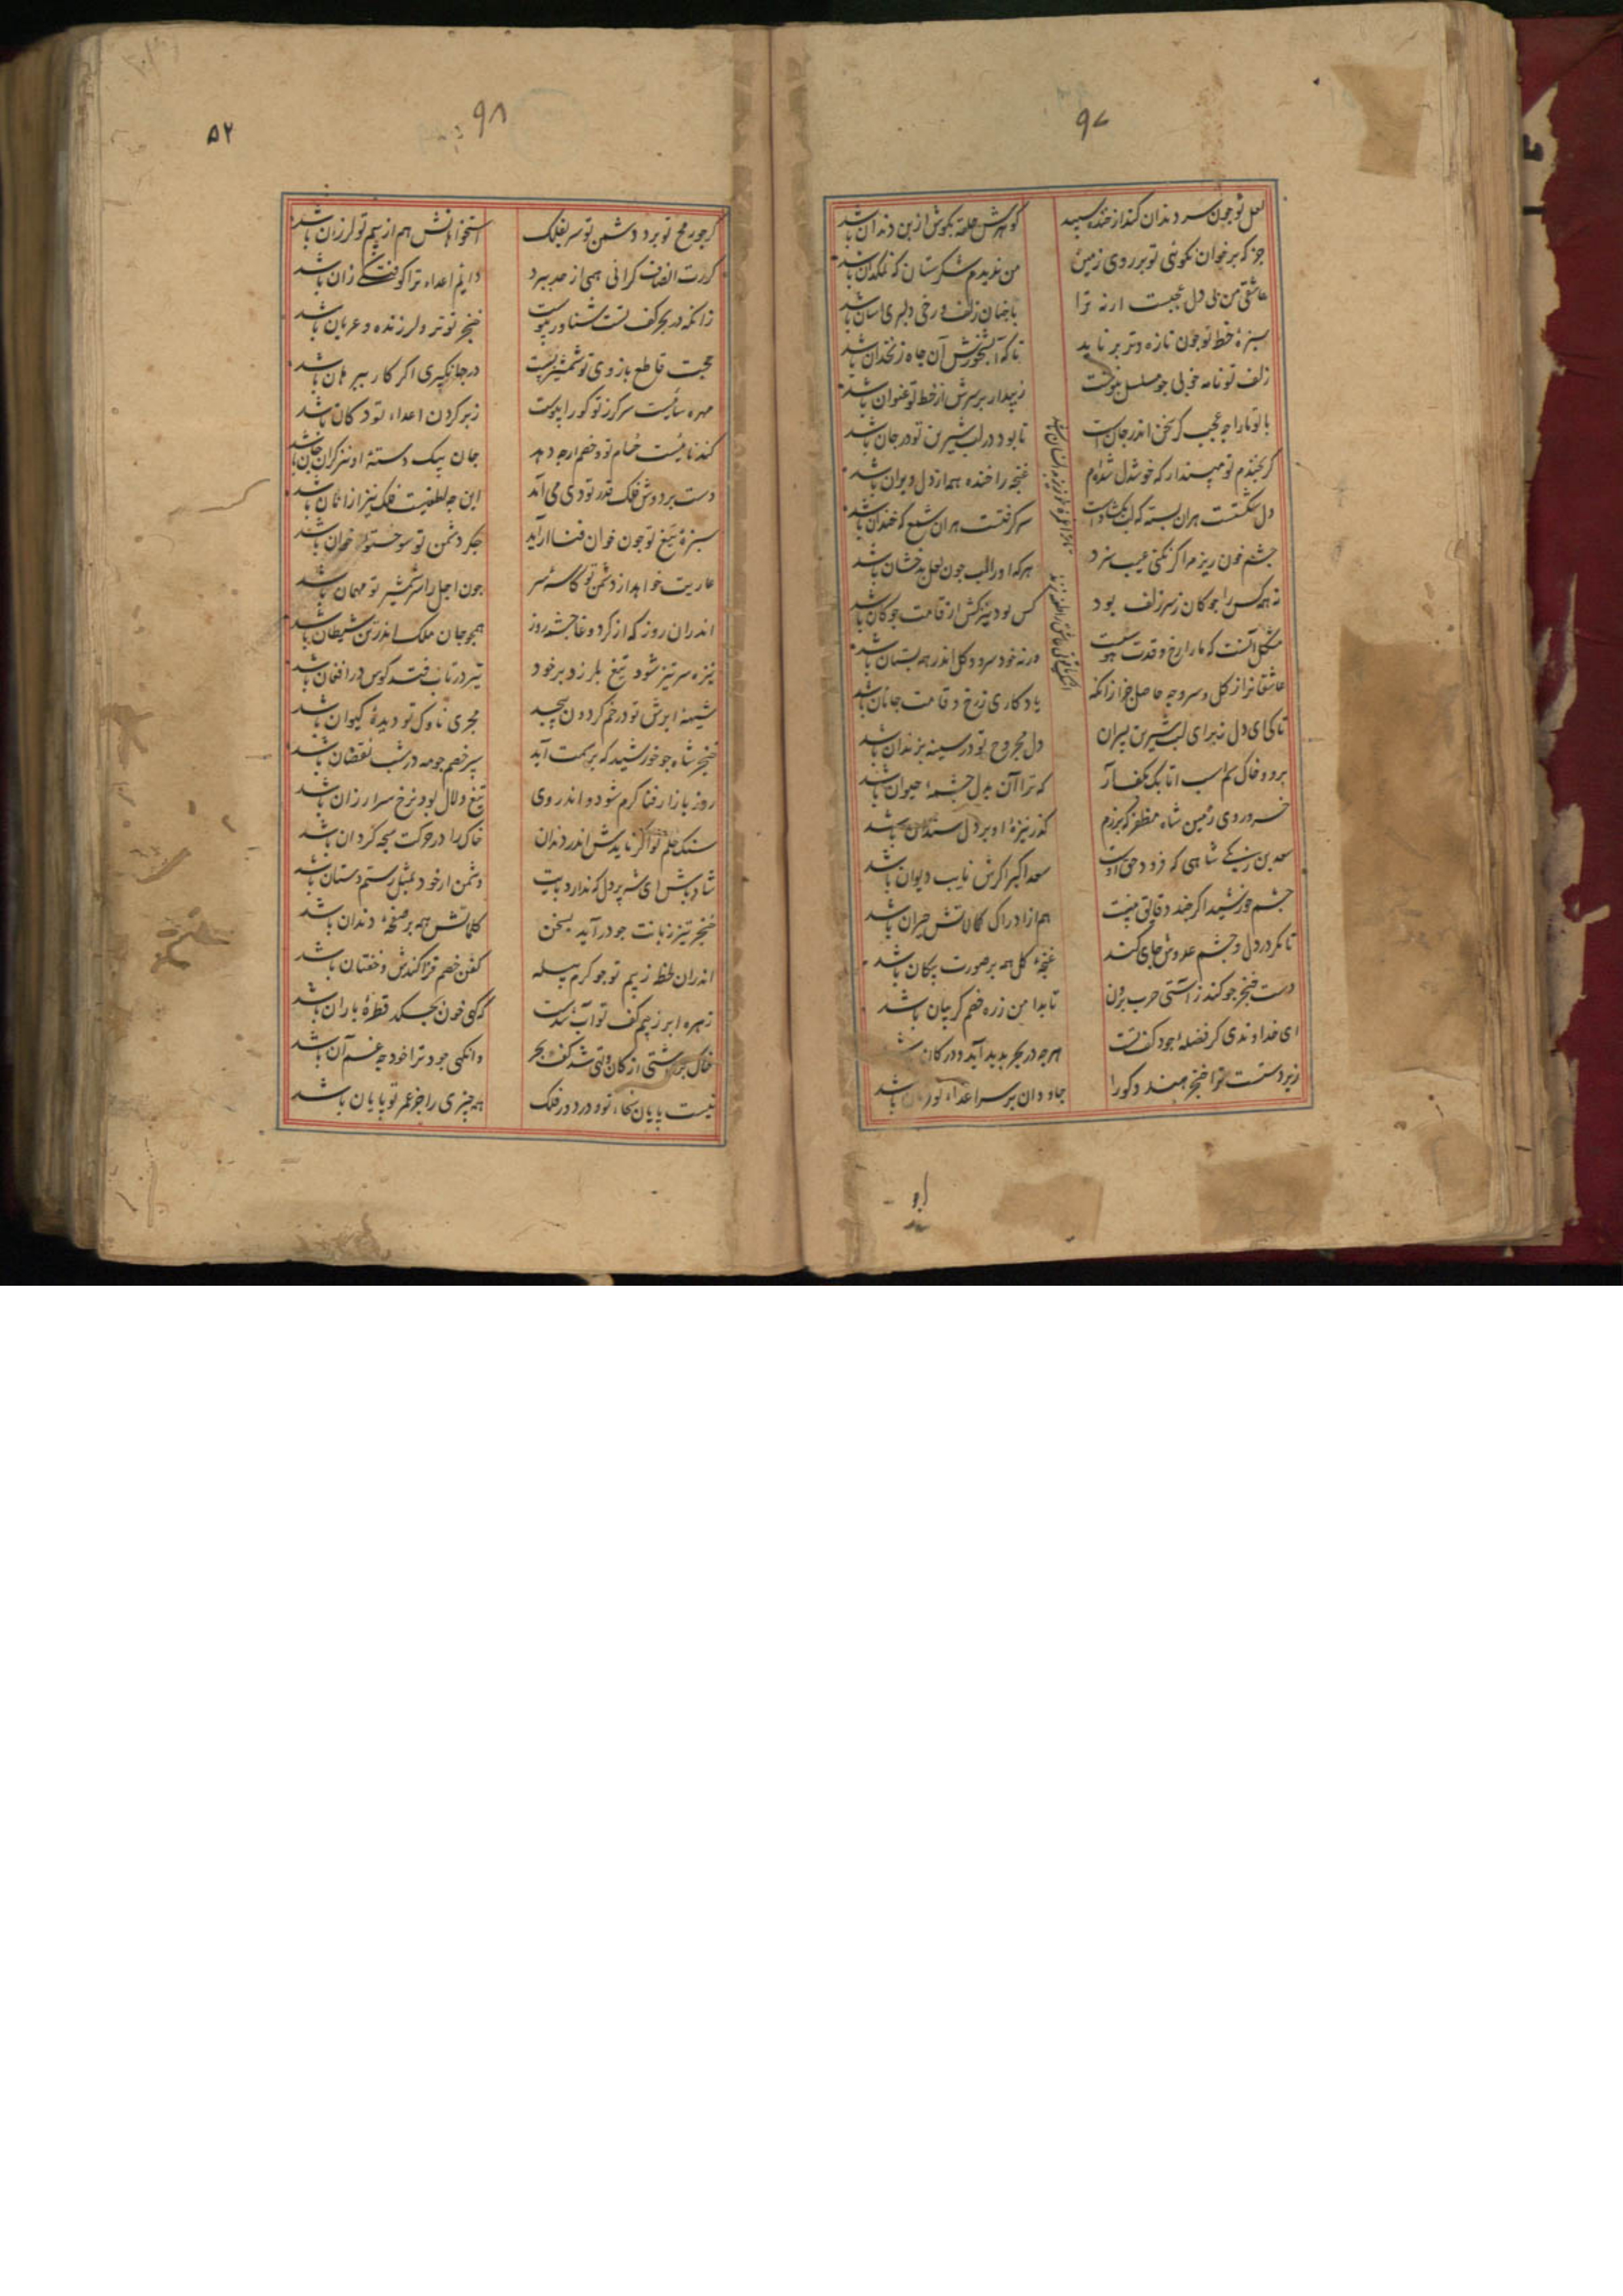 ۹۷
لعل تو چون سر دندان کند از خنده سپید
گوهرش حلقه بگوش از بن دندان باشد
جز که بر خوان نکوئی تو بر روی زمین
من ندیدم شکرستان که نمکدان باشد
عاشقی من بی دل عجبست ارنه ترا
با چنان زلف و رخی دلبری آسان باشد
سبزهٔ خط تو چون تازه و تر بر ناید
تا که آبشخورش آن چاه زنخدان باشد
زلف تو نامه خوبی چو مسلسل بنوشت
زیبد ار بر سرش از خط تو عنوان باشد
با تو ما را چه عجب گر سخن اندر جانست
تا بود در لب شیرین تو در جان باشد
گر بخندم تو مپندار که خوشدل شده‌ام
غنجه را خنده هم از دل ویران باشد
دل شکستست هران پسته که لب بگشادست
سرگرفتست هران شمع که خندان باشد
چشم خون ریز مرا گر نکنی عیب سزد
هرکه او را لب چون لعل بدخشان باشد
نه همه کس را چوگان ز سر زلف بود
کس بود نیز کش از قامت چوگان باشد
مشکل آنست که ما را رخ و قدت هوسست
ورنه خود سرو و گل اندر همه بستان باشد
عاشقانرا ز گل و سرو چه حاصل جز ازانکه
یادگاری ز رخ و قامت جانان باشد
تا کی ای دل ز برای لب شیرین پسران
دل مجروح تو در سینه بزندان باشد
برو و خاک سم اسب اتابک بکف آر
که ترا آن بدل چشمهٔ حیوان باشد
خسرو روی زمین شاه مظفر که برزم
گذر نیزهٔ او بر دل سندان باشد
سعد بن زنگی شاهی که فرود حق اوست
سعد اکبر اگرش نایب دیوان باشد
چشم خورشید اگر چند دقائق بینست
هم از ادراک کمالاتش حیران باشد
تا مگر در دل و چشم عدوش جای کند
غنجهٔ گل همه بر صورت پیکان باشد
دست خنجر چو کند ز آستی حرب برون
تا بدامن زره خصم گریبان باشد
ای خداوندی کز فضله جود کف تست
هر چه در بحر پدید آید و در کان باشد
زیر دستست ترا خنجر هندو گو را
جاودان بر سر اعداء تو باشد
۹۸
۵۲
گر چو رمح تو برد دشمن تو سر بفلک
استخوانهاش هم از بیم تو لرزان باشد
گرزت انصاف گرانی همی از حد ببرد
دایم اعداء ترا کوفتگی زان باشد
زانکه در بحر کف تست شناور پیوست
خنجر تو تر و لرزنده و عریان باشد
حجت قاطع بازوی تو شمشیر بست
در جهانگیری اگر کار ببرهان باشد
مهره سائیست سر گرز تو کو را پیوست
زبر گردن اعداء تو دکان باشد
کندنائیست حسام تو و خصم ارچه دهد
جان بیک دستهٔ او نیز گران جان باشد
دست بر دوش فلک قدر تو دی می‌آمد
این چه لطفیست فلک نیز از آنان باشد
سبزهٔ تیغ تو چون خوان فنا آراید
جگر دشمن تو سوختهٔ خوان باشد
عاریت خواهد از دشمن تو کاسهٔ سر
چون اجل را سر شمشیر تو مهمان باشد
اندران روز که از گرد وغا چشمه روز
همچو جان ملک اندر تن شیطان باشد
نیزه سر تیز شود تیغ بلرزد بر خود
تیر در تاب فتد کوس در افغان باشد
شیههٔ ابرش تو در خم گردون پیچد
مجری ناوک تو دیدهٔ کیوان باشد
خنجر شاه چو خورشید که بر سمت آید
سپر خصم چو مه در شب نقصان باشد
روز بازار فنا گرم شود و اندر وی
تیغ دلال بود نرخ سر ارزان باشد
سنگ حلم تو اگر نایدش اندر دندان
خاک را در حرکت سبحه گردان باشد
شاد باش ای شه پر دل که ندارد پایت
دشمن ار خود بمثل رستم دستان باشد
خنجر تیز زبانت چو درآید بسخن
کلماتش همه بر صفحهٔ دندان باشد
اندران لحظه ز بیم تو چو کرم پیله
کفن خصم قزاکندش و خفتان باشد
زهره ابر ز بیم کف تو آب شدست
گر گهی خون بچکد قطرهٔ باران باشد
وانگهی جود ترا خود چه غم آن باشد
نیست پایان بقاء تو و در دور فلک
همه چیزی را جز عمر تو پایان باشد